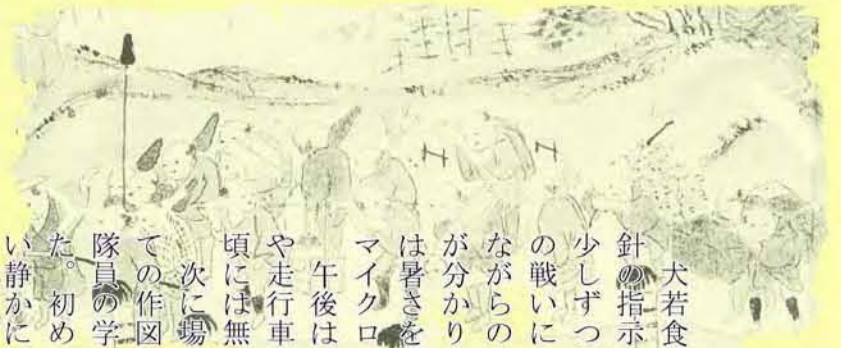 犬若食
針の指示
少しずつ
の戦いに
ながらの
が分かり
は暑さを
マイクロ
午後は
や走行車
頃には無
次に場
ての作図
隊員の学
た。初め
い静かに